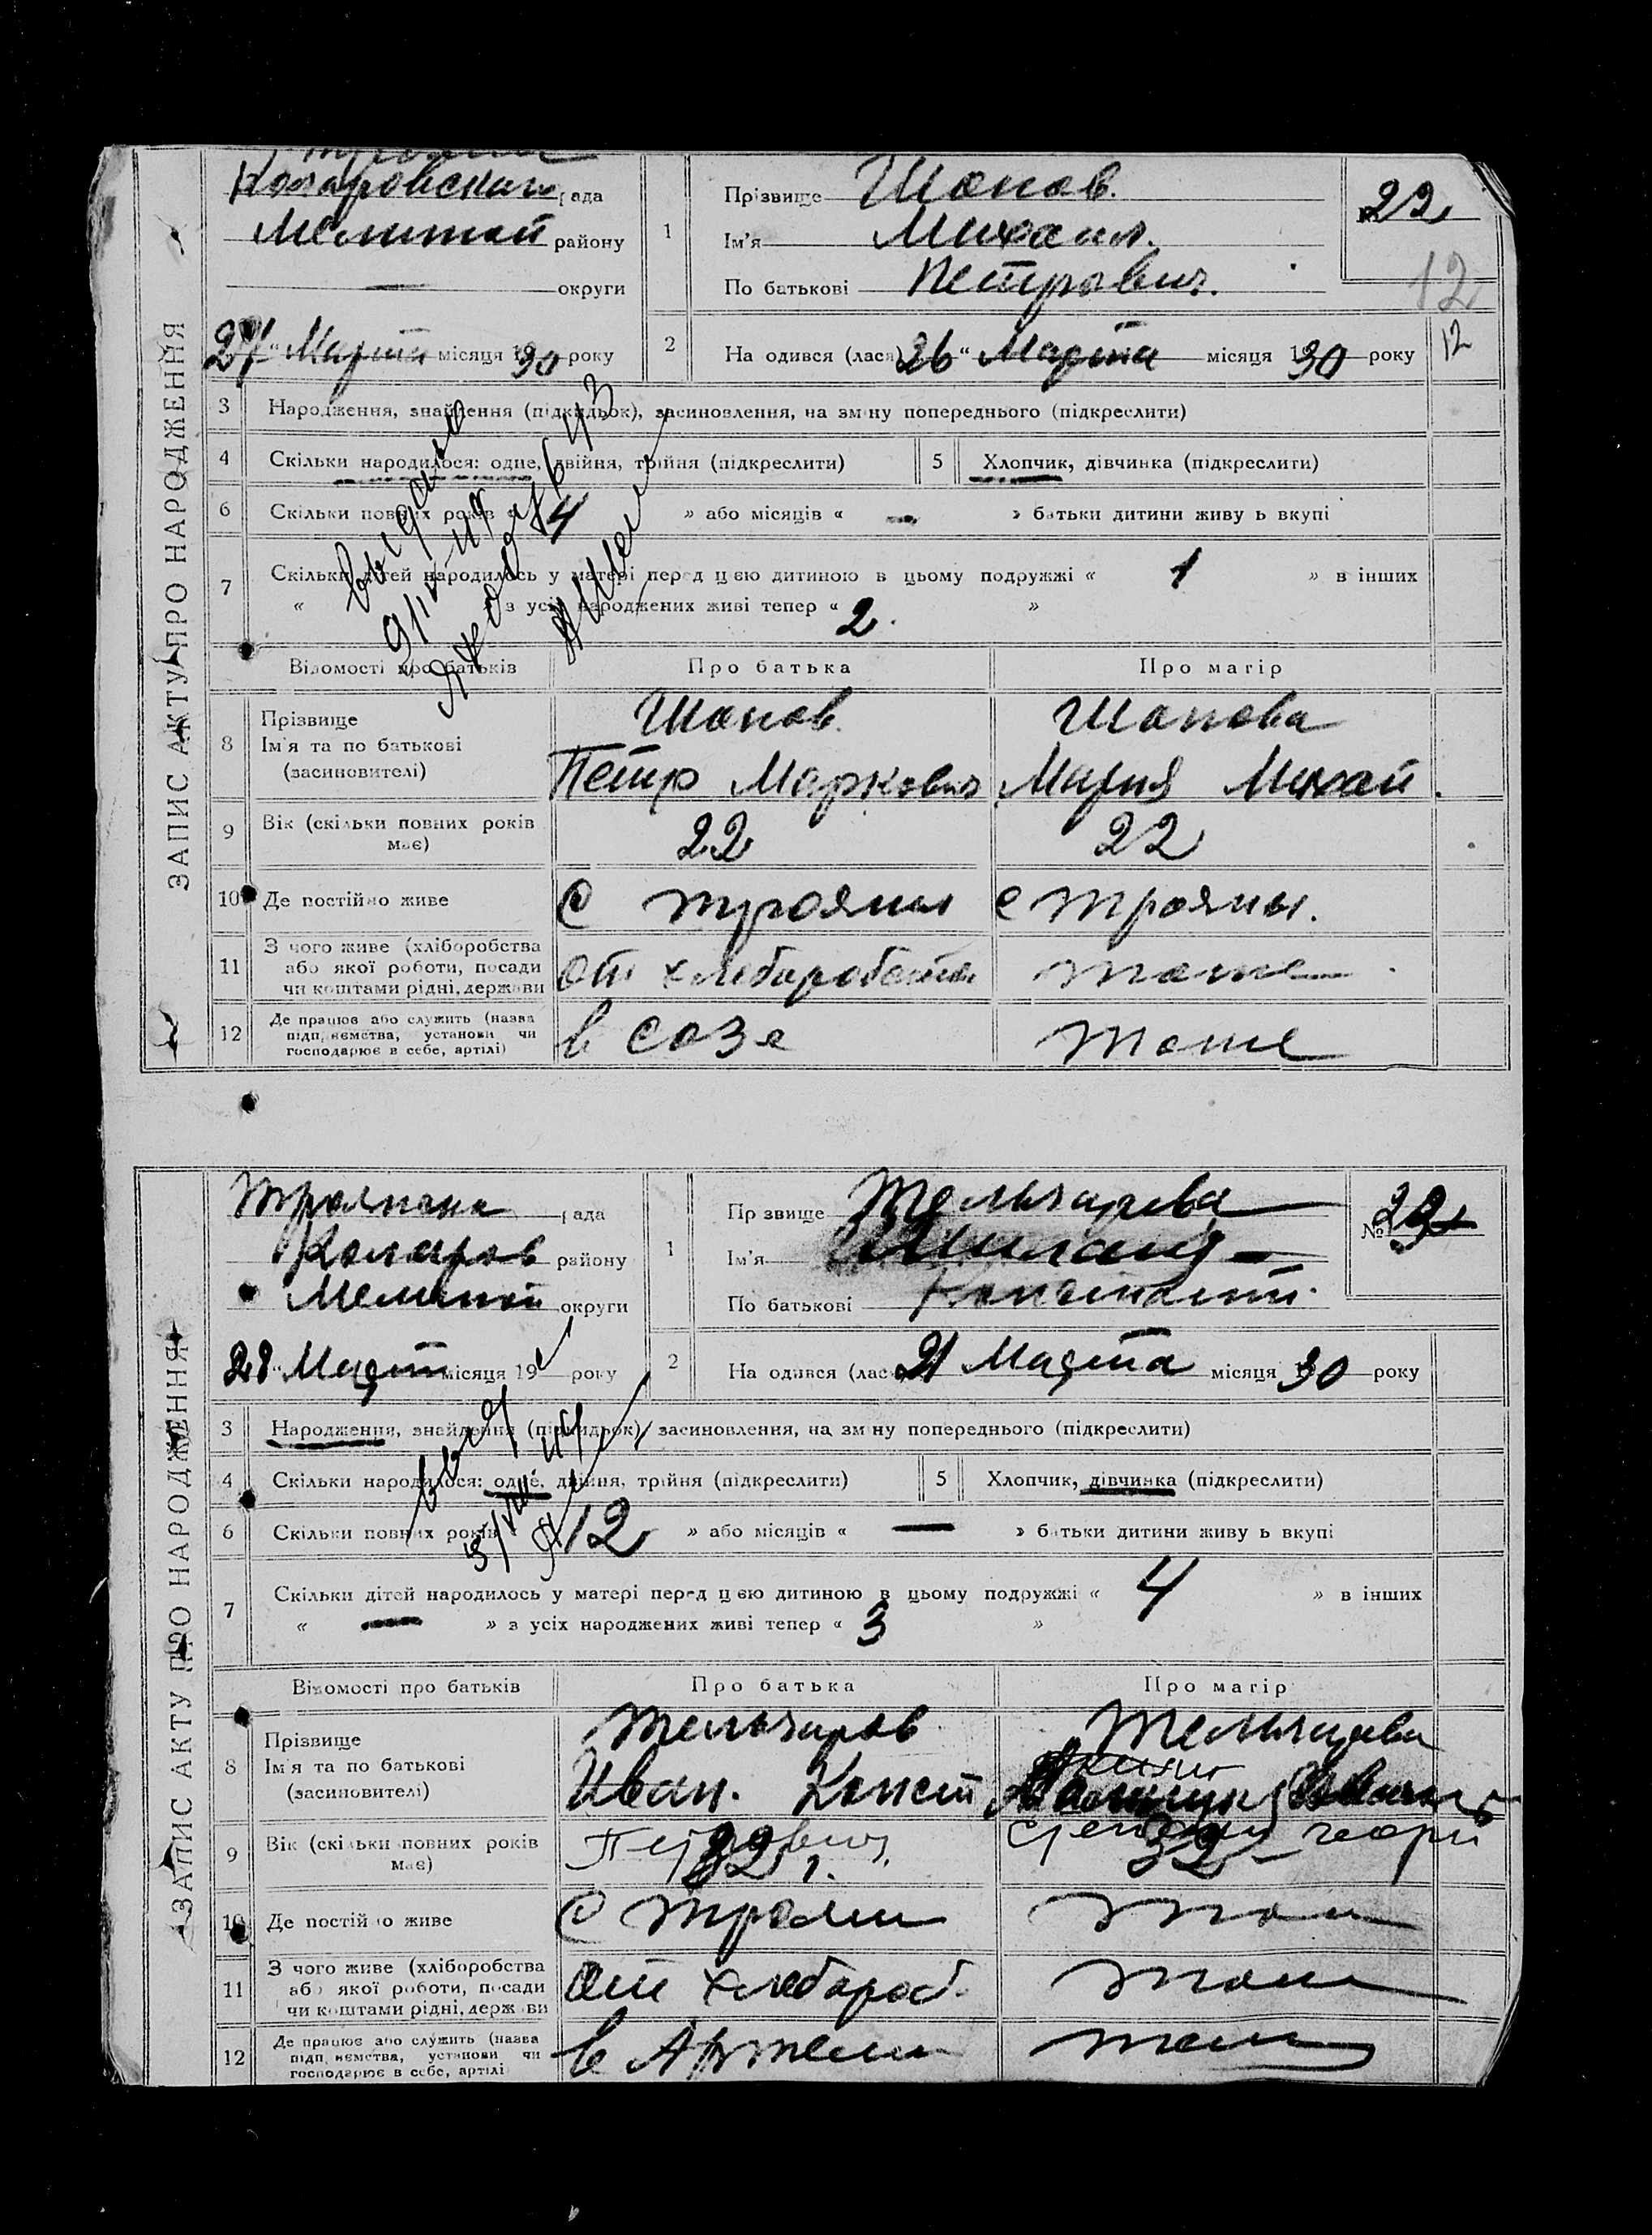 ЗАПИС АКТУ ПРО НАРОДЖЕННЯ
рада
Мелитой району
округи
27 " Марта місяця 1930 року
1
Прізвище Шопов.
Ім'я Михаил.
По батькові Петрович.
22
12
12
2
На одився (лася) 26 " Марта місяця 1930 року
3 Народження, знайдення (підкидьок), засиновлення, на зміну попереднього (підкреслити)
4 Скільки народилося: одне, двійня, трійня (підкреслити)
5 Хлопчик, дівчинка (підкреслити)
6 Скільки повних років « 4 » або місяців « — » батьки дитини живуть вкупі
7 Скільки дітей народилось у матері перед цією дитиною в цьому подружжі « 1 » в інших
« з усіх народжених живі тепер « 2. »
Відомості про батьків
Про батька
Про матір
8 Прізвище
Ім'я та по батькові
(засиновителі)
Шопов.
Петр Маркович
Шопова
Мария Михай.
9 Вік (скільки повних років має)
22
22
10 Де постійно живе
с трояны
с трояны.
11 З чого живе (хліборобства
або якої роботи, посади
чи коштами рідні, держави
от хлеборобства
тоже
12 Де працює або служить (назва
підприємства, установи чи
господарює в себе, артілі)
в созе
тоже
ЗАПИС АКТУ ПРО НАРОДЖЕННЯ
рада
Коларов району
округи
28 " Март місяця 19 року
1
Прізвище Тельчарева
Ім'я
По батькові Константин.
№
2
На одився (лас 21 Марта місяця 1930 року
3 Народження, знайдення (підкидьок), засиновлення, на зміну попереднього (підкреслити)
4 Скільки народилося: одне, двійня, трійня (підкреслити)
5 Хлопчик, дівчинка (підкреслити)
6 Скільки повних років 12 » або місяців « — » батьки дитини живуть вкупі
7 Скільки дітей народилось у матері перед цією дитиною в цьому подружжі « 4 » в інших
« — » з усіх народжених живі тепер « 3 »
Відомості про батьків
Про батька
Про матір
8 Прізвище
Ім'я та по батькові
(засиновителі)
Тельчаров
Иван. Конст
Петрович
Тельчарева
9 Вік (скільки повних років має)
32 г.
32
10 Де постійно живе
с трояни
11 З чого живе (хліборобства
або якої роботи, посади
чи коштами рідні, держави
От хлебороб.
тоже
12 Де працює або служить (назва
підприємства, установи чи
господарює в себе, артілі
в Артели